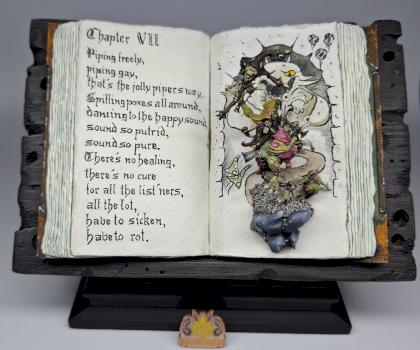 Chapter VII
Piping freely,
piping gay,
that's the jolly pipers way,
Spilling poxes all around,
dancing to the happy sound,
sound so putrid,
sound so pure.
There's no healing,
there's no cure
for all the list'ners,
all the lot,
have to sicken,
have to rot.